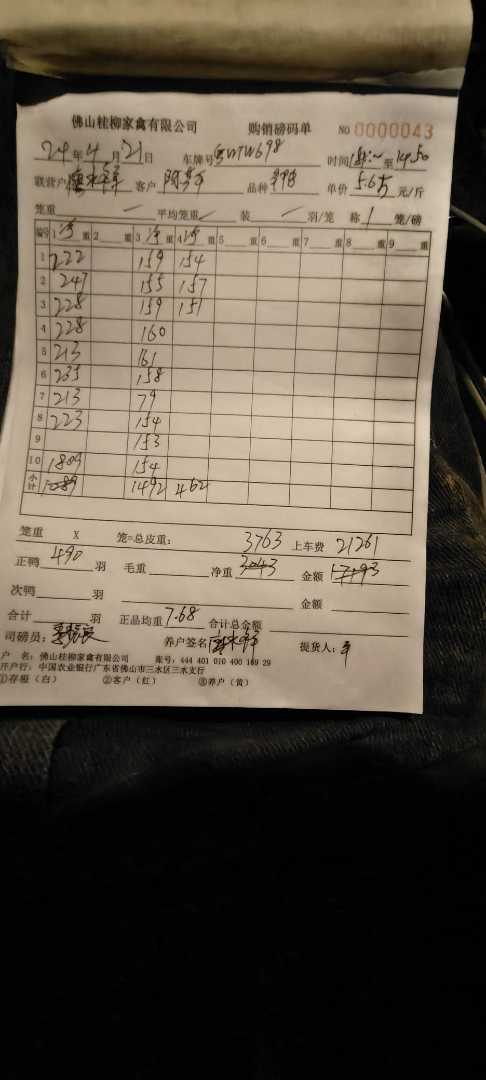 佛山桂柳家禽有限公司 购销磅码单 NO 0000043
24年4月21日 车牌号 时间 至14:50
联营户 客户 品种 单价5.65元/斤
笼重 — 平均笼重 — 装 — 羽/笼 称1笼/磅
编号 1净重 2 重 3净重 4净重 5 重 6 重 7 重 8 重 9 重
1 222 159 154
2 247 155 157
3 228 159 151
4 228 160
5 213 161
6 235 158
7 213 79
8 223 154
9 153
10 1809 154
小计 1492 462
笼重 X 笼=总皮重: 3763 上车费 21261
正鸭490羽 毛重 净重 3043 金额 17193
次鸭 羽 金额
合计 羽 正品均重7.68 合计总金额
司磅员: 养户签名 提货人:
户 名: 佛山桂柳家禽有限公司 账号: 444 401 010 400 169 29
开户行: 中国农业银行广东省佛山市三水区三水支行
①存根(白) ②客户(红) ③养户(黄)